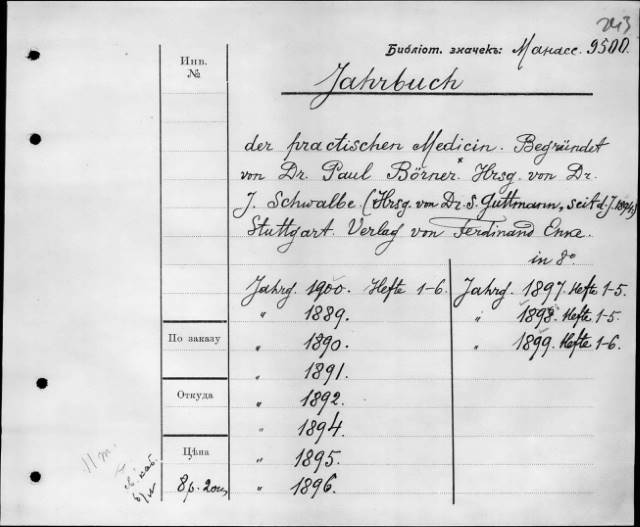 243
Библіот. значекъ: Манасс. 9500.
Инв.
№
Jahrbuch
der practischen Medicin. Begründet
von Dr. Paul Börner.* Hrsg. von Dr.
J. Schwalbe. (Hrsg. von Dr. S. Guttmann, seit d. J. 1894)
Stuttgart. Verlag von Ferdinand Enke.
in 8°
Jahrg. 1900. Hefte 1-6. Jahrg. 1897. Hefte 1-5.
" 1889. " 1898. Hefte 1-5.
По заказу " 1890. " 1899. Hefte 1-6.
" 1891.
Откуда " 1892.
" 1894.
Цѣна " 1895.
8р. 20 " 1896.